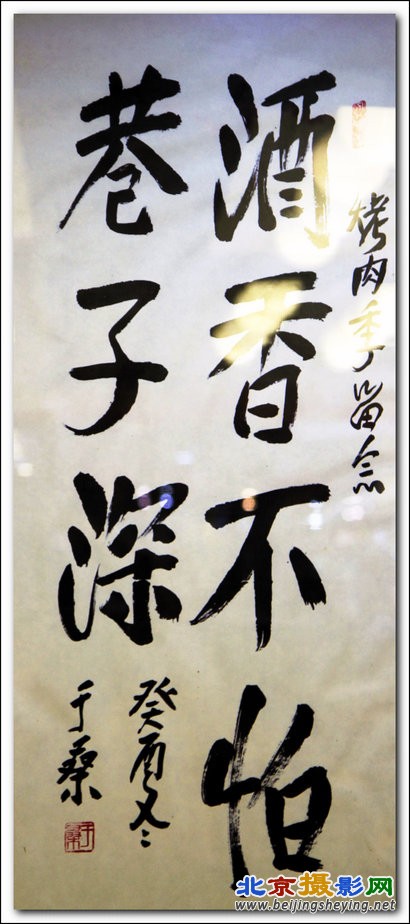 烤肉季留念
酒香不怕
巷子深
癸酉冬
于桑
北京摄影网
www.beijingsheying.net